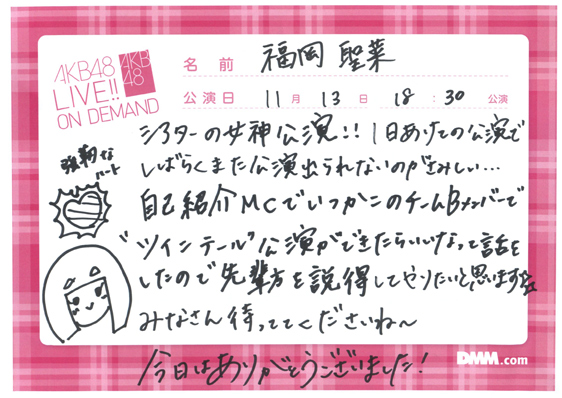 AKB48
LIVE!!
ON DEMAND
AKB
48
名前 福岡 聖菜
公演日 11月 13日 18:30 公演
シアターの女神公演!! 1日あけての公演で
しばらくまた公演出られないのがさみしい…
強靭な
ハート
自己紹介MCでいつかこのチームBメンバーで
"ツインテール"公演ができたらいいなって話を
したので先輩方を説得してやりたいと思います
みなさん待っててくださいね〜
今日はありがとうございました!
DMM.com